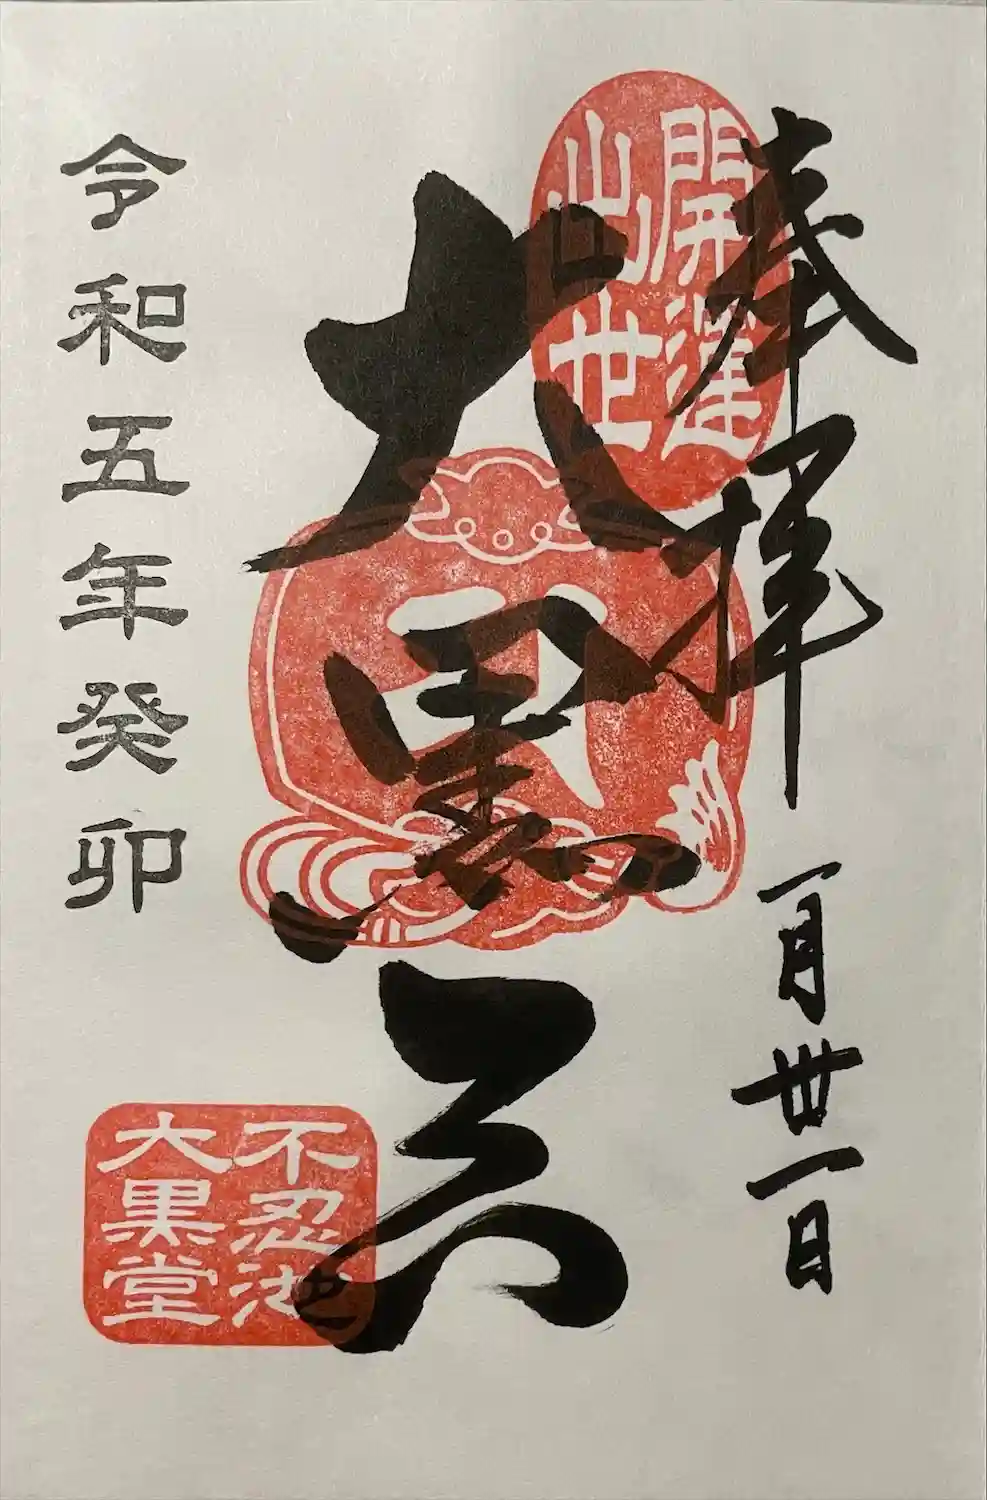 奉拝 一月卅一日
開運
出世
大黒天
令和五年癸卯
不忍池
大黒堂